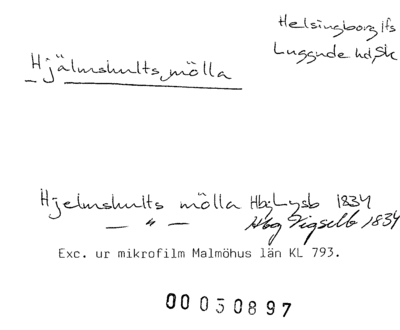 Helsingborg lfs
Luggude hd, Sk
Hjälmshults mölla
Hjelmshults mölla Hbg Lysb 1834
— " — Hbg Vigselb 1834
Exc. ur mikrofilm Malmöhus län KL 793.
00 030897